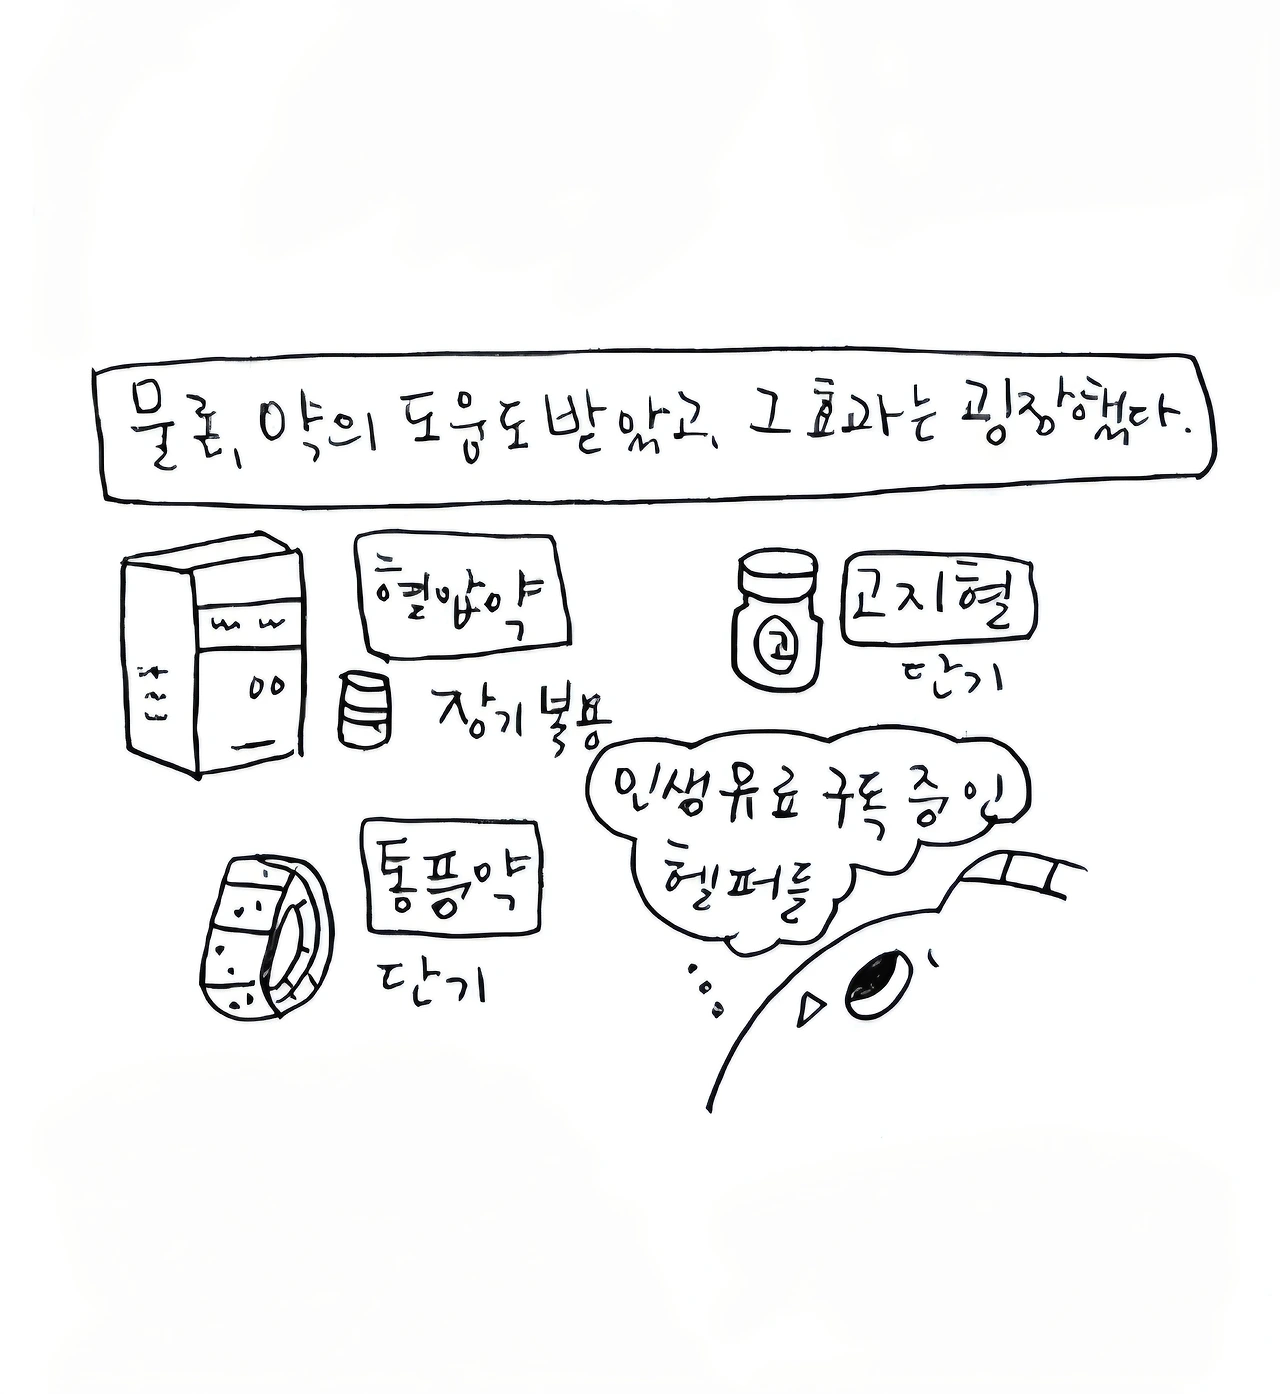 물론, 약의 도움도 받았고, 그 효과는 굉장했다.
혈압약
장기 복용
고지혈
고
단기
인생 유료 구독 중인
헬퍼들
통풍약
단기